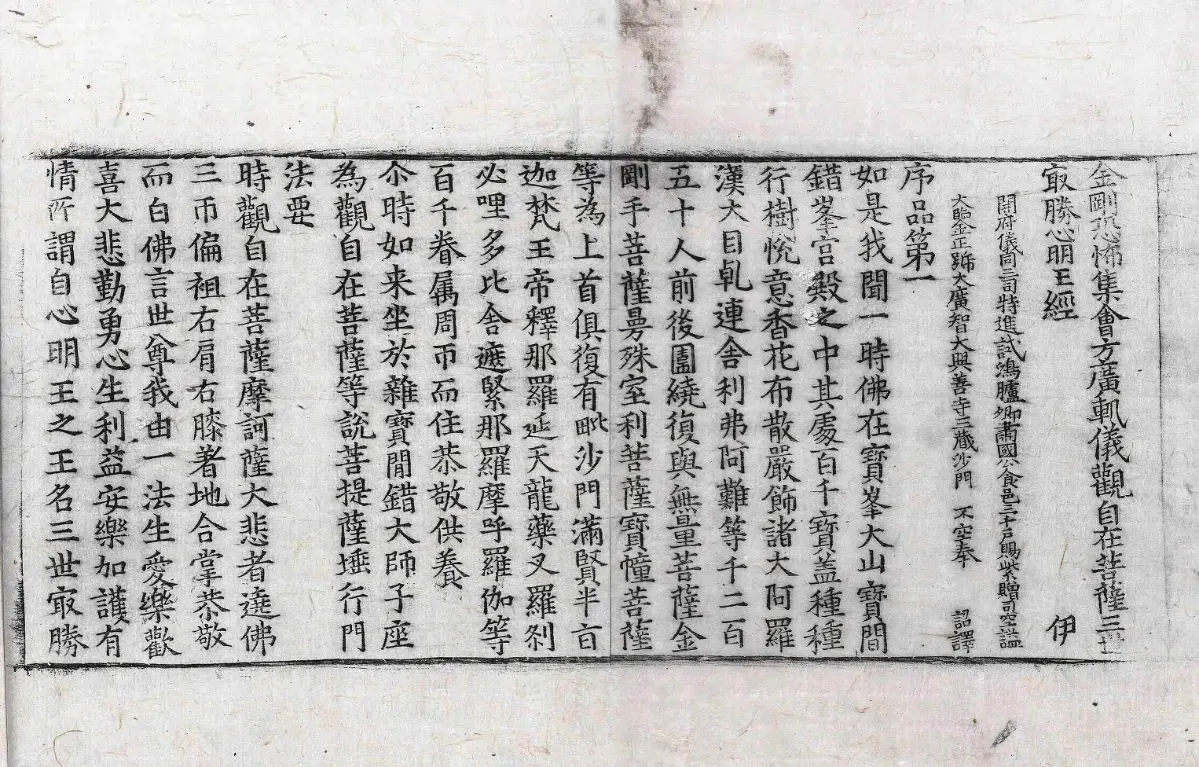 金剛恐怖集會方廣軌儀觀自在菩薩三世
冣勝心明王經 伊
開府儀同三司特進試鴻臚卿肅國公食邑三千戶賜紫贈司空謚
大鑒正號大廣智大興善寺三藏沙門 不空奉 詔譯
序品第一
如是我聞一時佛在寶峯大山寶間
錯峯宮殿之中其處百千寶盖種種
行樹悅意香花布散嚴飾諸大阿羅
漢大目乹連舍利弗阿難等千二百
五十人前後圍繞復與無量菩薩金
剛手菩薩曼殊室利菩薩寶幢菩薩
等為上首俱復有毗沙門滿賢半㠯
迦梵王帝釋那羅延天龍藥叉羅刹
必哩多比舍遮緊那羅摩呼羅伽等
百千眷属周帀而住恭敬供養
尒時如来坐於雜寶閒錯大師子座
為觀自在菩薩等說菩提薩埵行門
法要
時觀自在菩薩摩訶薩大悲者遶佛
三帀偏袒右肩右膝著地合掌恭敬
而白佛言世尊我由一法生愛樂歡
喜大悲勤勇心生利益安樂加護有
情所謂自心明王之王名三世冣勝